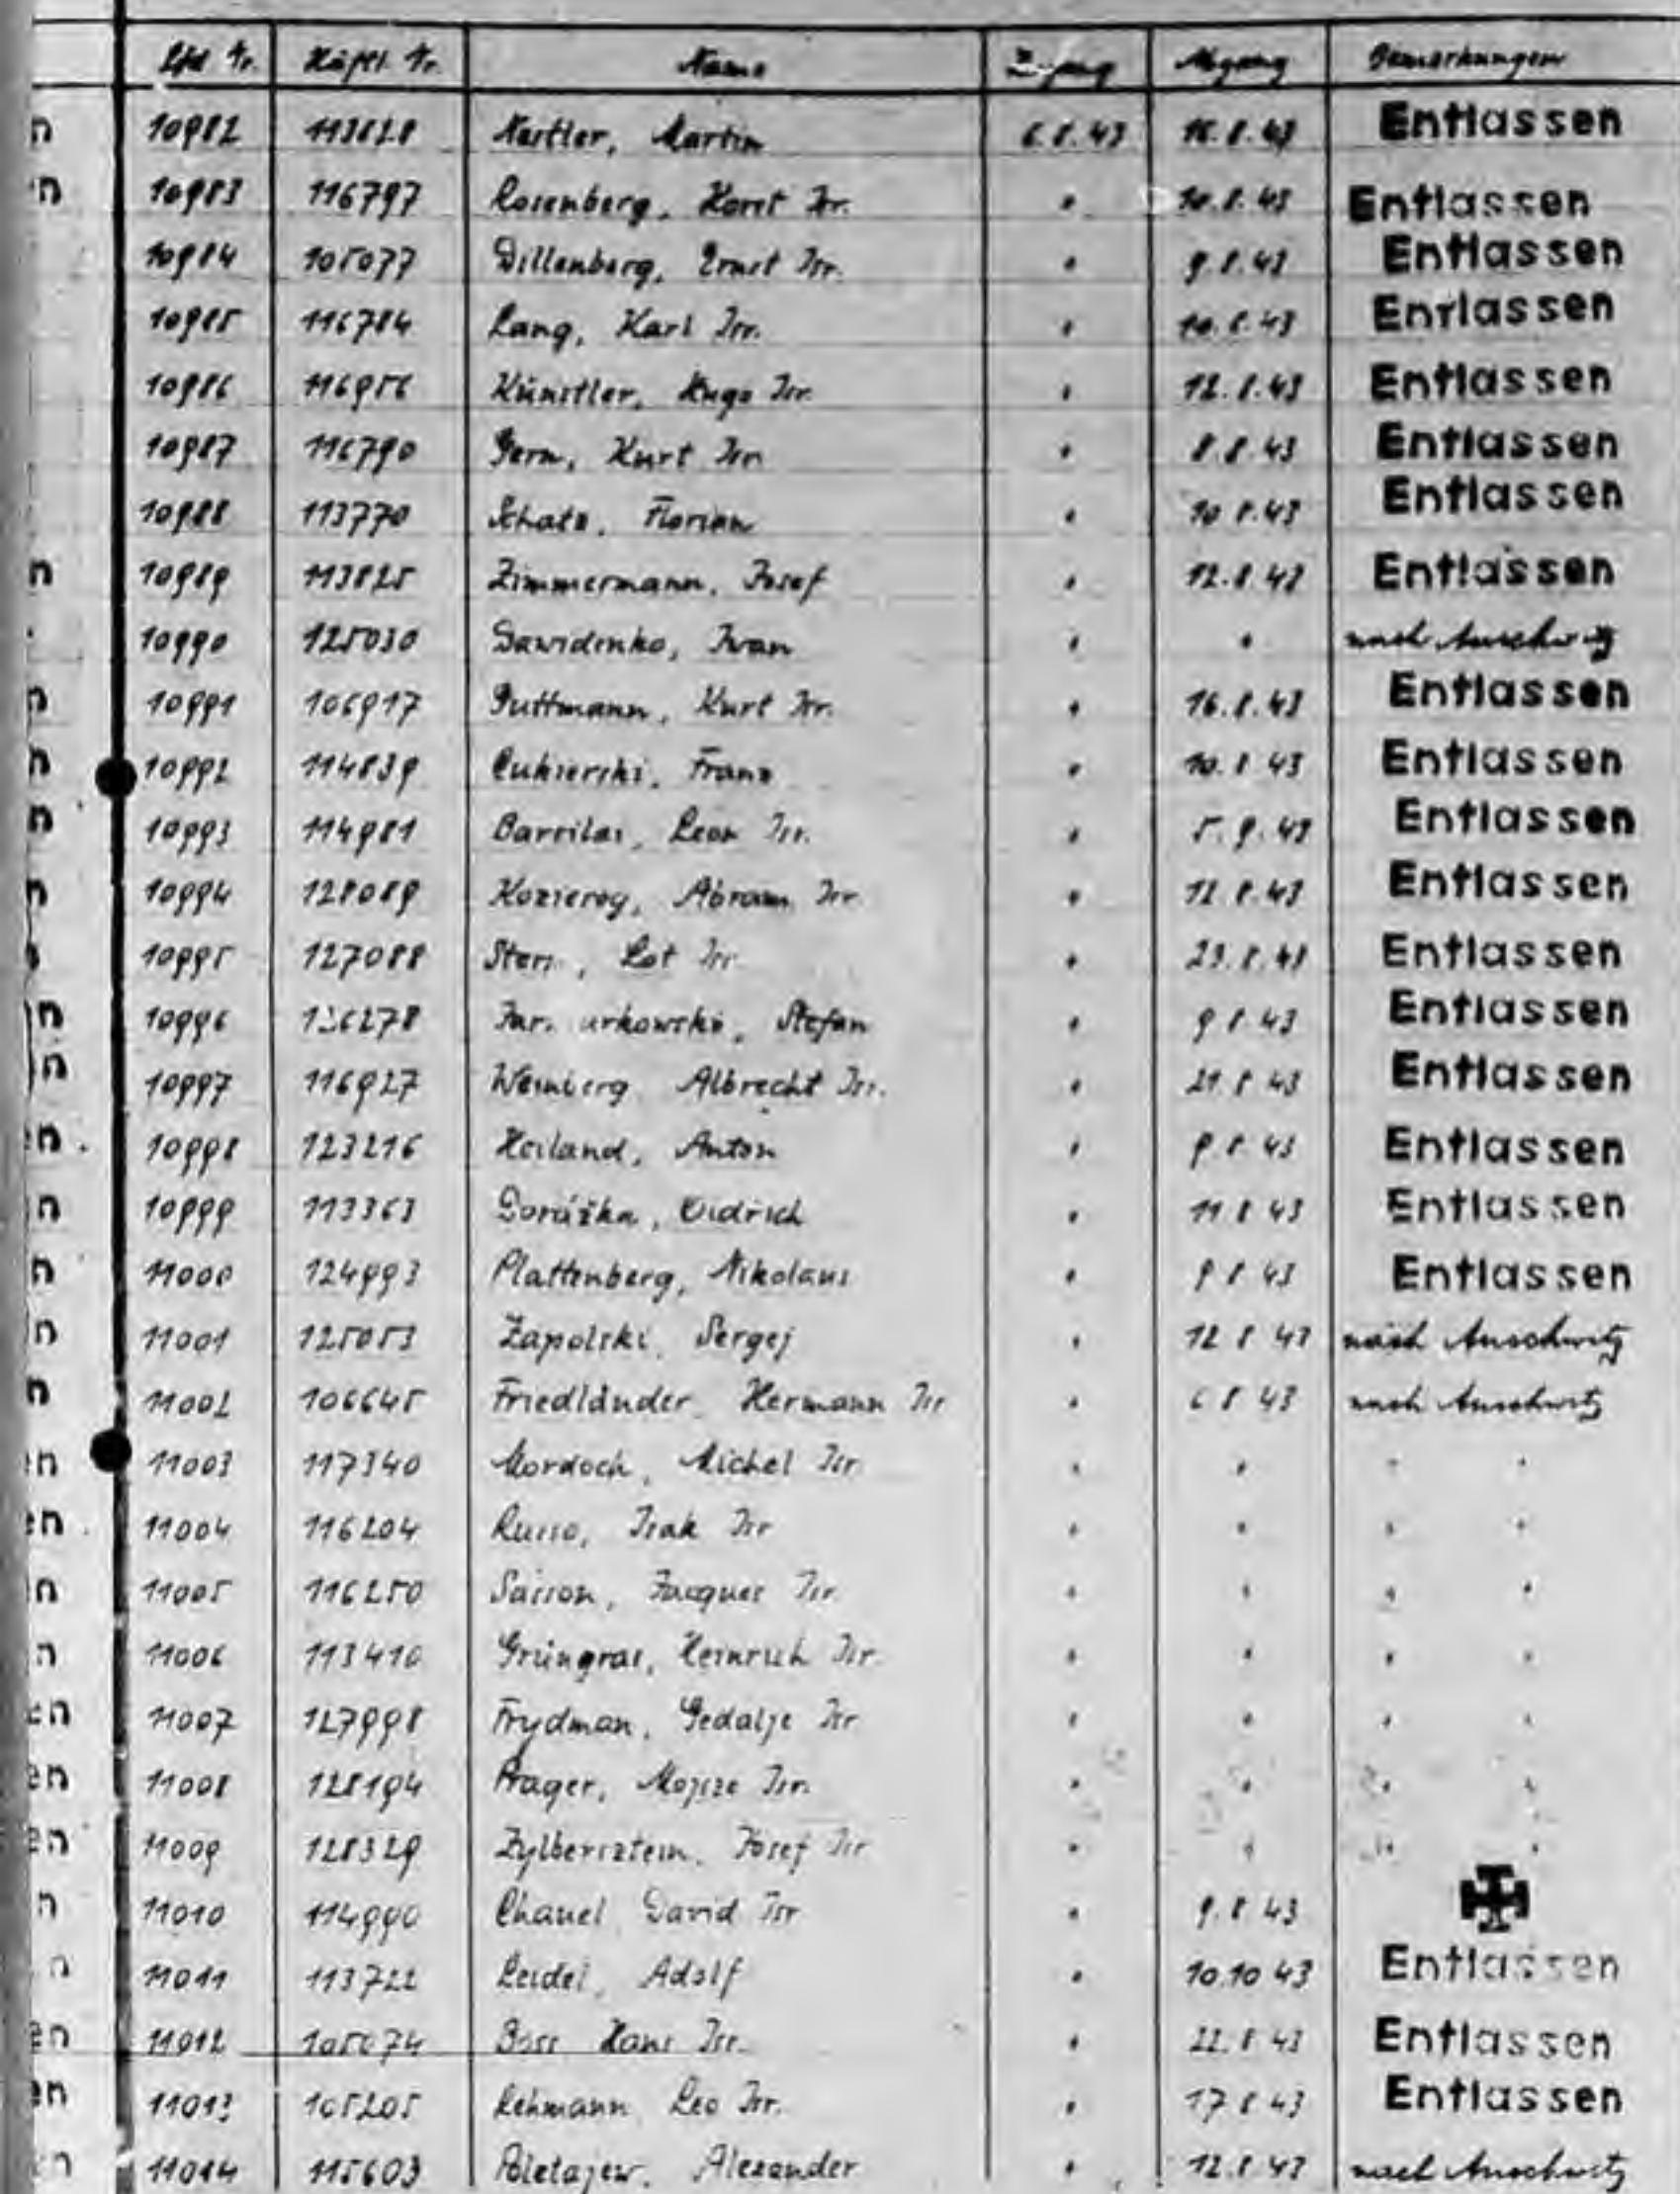 Lfd Nr. Häftl. Nr. Name Zugang Abgang Bemerkungen
n 10982 113828 Nestler, Martin 6.8.43 16.8.43 Entlassen
n 10983 116797 Rosenberg, Horst Isr. " 10.8.43 Entlassen
10984 105077 Dillenberg, Ernst Isr. " 9.8.43 Entlassen
10985 116784 Lang, Karl Isr. " 10.8.43 Entlassen
10986 116956 Künstler, Hugo Isr. " 12.8.43 Entlassen
10987 116790 Germ, Kurt Isr. " 8.8.43 Entlassen
10988 113770 Schatz, Florian " 10.8.43 Entlassen
n 10989 113825 Zimmermann, Josef " 12.8.43 Entlassen
10990 125030 Dawidenko, Iwan " " nach Auschwitz
n 10991 106917 Guttmann, Kurt Isr. " 16.8.43 Entlassen
n 10992 114839 Cukierski, Franz " 10.8.43 Entlassen
n 10993 114981 Barsilai, Leon Isr. " 5.9.43 Entlassen
n 10994 128089 Kozierog, Abram Isr. " 12.8.43 Entlassen
10995 127088 Lot Isr. " 23.8.43 Entlassen
n 10996 Stefan " 9.8.43 Entlassen
n 10997 116927 Weinberg Albrecht Isr. " 21.8.43 Entlassen
n. 10998 123216 Heiland, Anton " 9.8.43 Entlassen
n 10999 113363 Doražka, Oldrich " 11.8.43 Entlassen
n 11000 124993 Plattenberg, Nikolaus " 9.8.43 Entlassen
n 11001 125053 Zapolski, Sergej " 12.8.43 nach Auschwitz
n 11002 106645 Friedländer, Hermann Isr " 6.8.43 nach Auschwitz
n 11003 117340 Mordoch, Michel Isr. " " " "
en 11004 116204 Russo, Isak Isr " " " "
n 11005 116250 Sasson, Jacques Isr " " " "
n 11006 113410 Grüngras, Heinrich Isr. " " " "
en 11007 127998 Frydman, Gedalje Isr " " " "
en 11008 128194 Prager, Mojsze Isr. " " " "
en 11009 128329 Zylbersztein, Josef Isr " " " "
n 11010 114990 David Isr " 9.8.43
n 11011 113722 Leidel, Adolf " 10.10.43 Entlassen
en 11012 105074 Hans Isr. " 22.8.43 Entlassen
en 11013 105205 Lehmann Leo Isr. " 17.8.43 Entlassen
en 11014 115603 Poletajew, Alexander " 12.8.43 nach Auschwitz